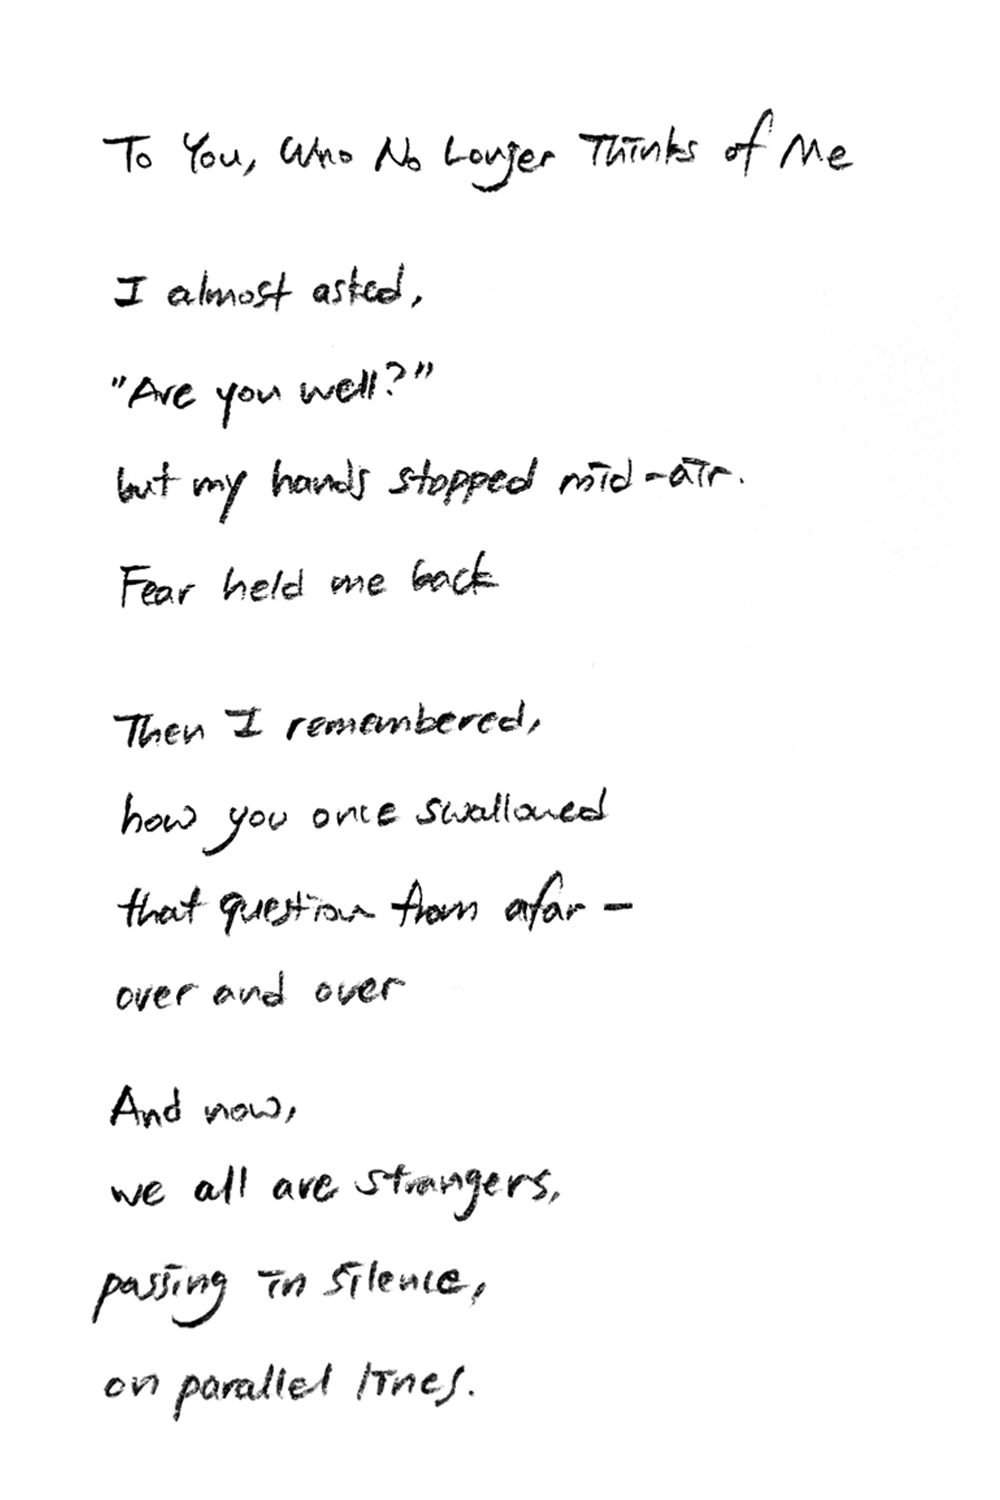 To You, Who No Longer Thinks of Me
I almost asked,
"Are you well?"
but my hands stopped mid-air.
Fear held me back
Then I remembered,
how you once swallowed
that question from afar -
over and over
And now,
we all are strangers,
passing in silence,
on parallel lines.